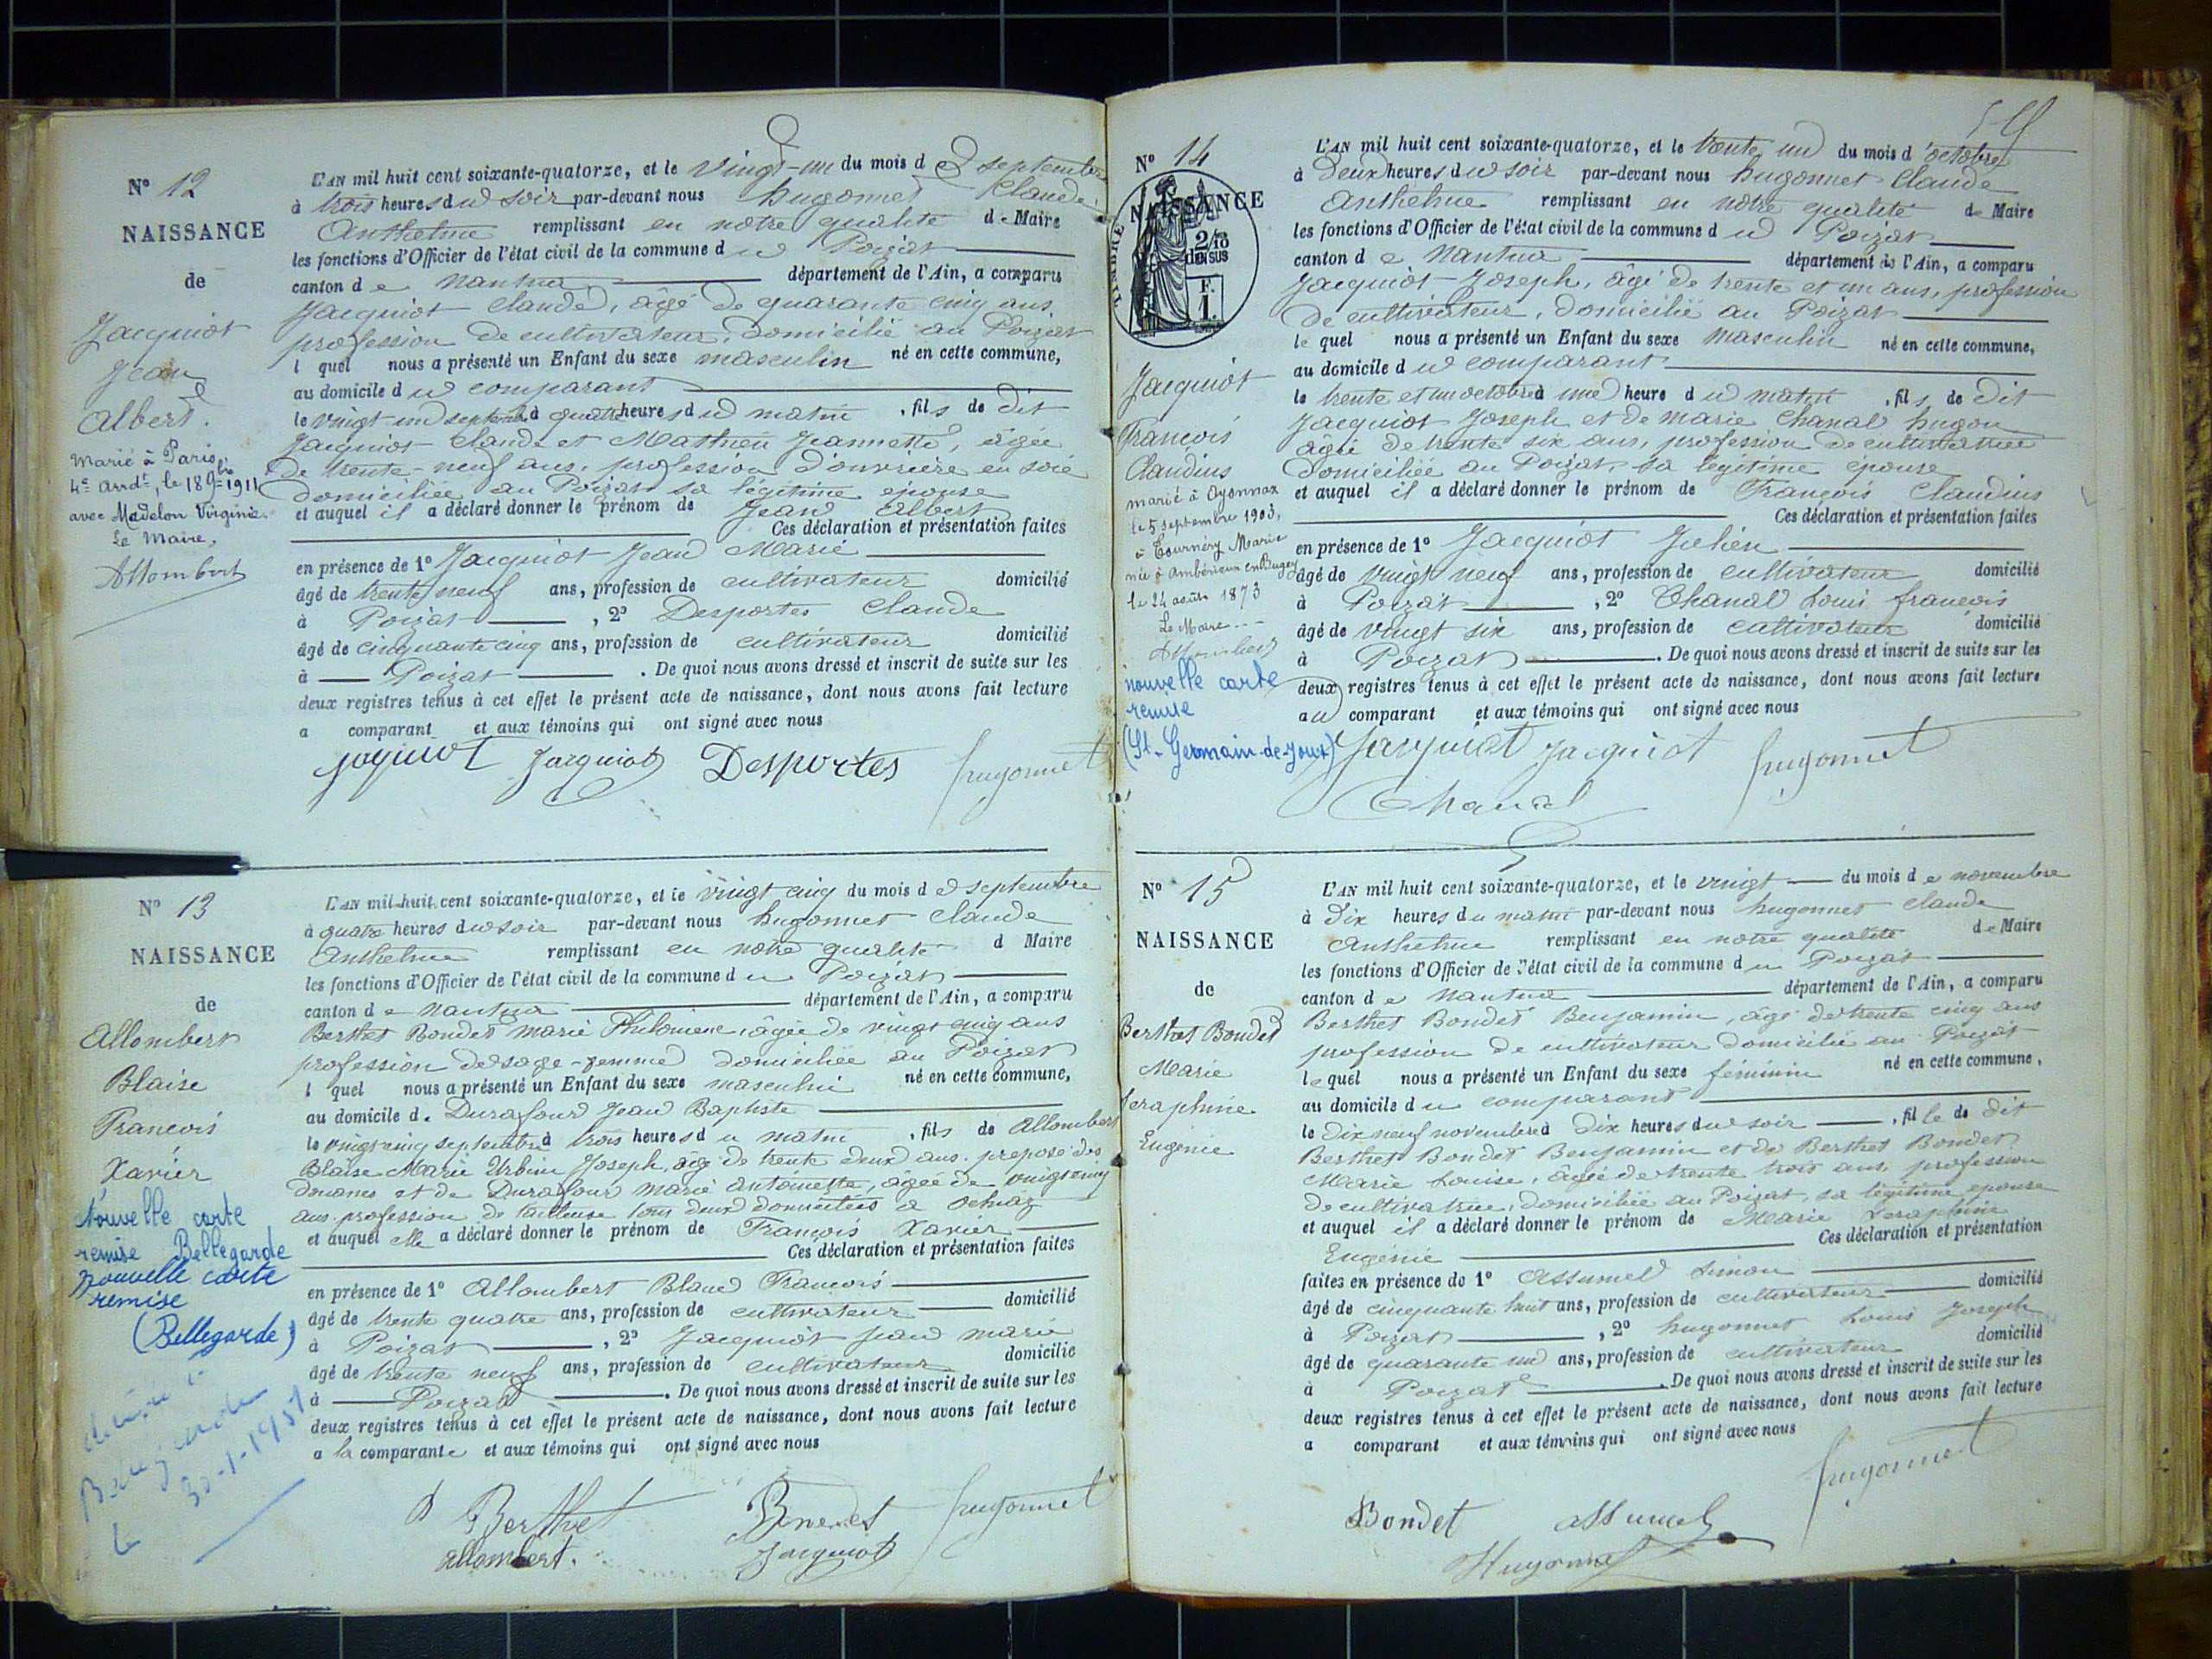 N° 12
NAISSANCE
de
Jacquiot
Jean
Albert.
Marié à Paris,
4e arrdt, le 18 9bre 1911
avec Madelon Virginie.
Le Maire,
Allombert
L'AN mil huit cent soixante-quatorze, et le vingt-un du mois de septembre
à trois heures du soir par-devant nous hugonnet Claude
Anthelme remplissant en notre qualité de Maire
les fonctions d'Officier de l'état civil de la commune du Poizat
canton de Nantua département de l'Ain, a comparu
Jacquiot Claude, âgé de quarante cinq ans
profession de cultivateur, domicilié au Poizat
l quel nous a présenté un Enfant du sexe masculin né en cette commune,
au domicile du comparant
le vingt-un septembre à quatre heures du matin, fils de dit
Jacquiot Claude et Mathieu Jeannette, âgée
de trente-neuf ans, profession d'ouvrière en soie
domiciliée au Poizat sa légitime épouse
et auquel il a déclaré donner le prénom de Jean Albert
Ces déclaration et présentation faites
en présence de 1° Jacquiot Jean Marie
âgé de trente neuf ans, profession de cultivateur domicilié
à Poizat, 2° Desportes Claude
âgé de cinquante cinq ans, profession de cultivateur domicilié
à Poizat. De quoi nous avons dressé et inscrit de suite sur les
deux registres tenus à cet effet le présent acte de naissance, dont nous avons fait lecture
a comparant et aux témoins qui ont signé avec nous
Jaquiot Jacquiot Desportes hugonnet
N° 13
NAISSANCE
de
Allombert
Blaise
François
Xavier
Nouvelle carte
remise Bellegarde
nouvelle carte
remise
(Bellegarde)
Bellegarde
le 30-1-1951
L'AN mil huit cent soixante-quatorze, et le vingt cinq du mois de septembre
à quatre heures du soir par-devant nous hugonnet Claude
Anthelme remplissant en notre qualité d Maire
les fonctions d'Officier de l'état civil de la commune du Poizat
canton de Nantua département de l'Ain, a comparu
Berthet Bondet Marie Philomène, âgée de vingt cinq ans
profession de sage-femme domiciliée au Poizat
l quel nous a présenté un Enfant du sexe masculin né en cette commune,
au domicile d. Durafour Jean Baptiste
le vingt cinq septembre à trois heures du matin, fils de Allombert
Blaise Marie Urbin Joseph, âgé de trente deux ans. préposé des
douanes et de Durafour Marie Antoinette, âgée de vingt cinq
ans profession de tailleuse tous deux domiciliés à Ochiaz
et auquel elle a déclaré donner le prénom de François Xavier
Ces déclaration et présentation faites
en présence de 1° Allombert Blanc François
âgé de trente quatre ans, profession de cultivateur domicilié
à Poizat, 2° Jacquiot Jean Marie
âgé de trente neuf ans, profession de cultivateur domicilié
à Poizat. De quoi nous avons dressé et inscrit de suite sur les
deux registres tenus à cet effet le présent acte de naissance, dont nous avons fait lecture
a la comparante et aux témoins qui ont signé avec nous
Berthet Bondet hugonnet
allombert. Jacquiot
N° 14
NAISSANCE
TIMBRE
2/10
EN SUS
F.
1.
Jacquiot
François
Claudius
marié à Oyonnax
le 5 septembre 1903,
à Tournéry Marie
née à Ambérieux en Bugey
le 24 août 1873
Le Maire
Allombert
nouvelle carte
remise
(St-Germain-de-Joux)
L'AN mil huit cent soixante-quatorze, et le trente un du mois d'octobre
à Deux heures du soir par-devant nous hugonnet Claude
Anthelme remplissant en notre qualité de Maire
les fonctions d'Officier de l'état civil de la commune du Poizat
canton de Nantua département de l'Ain, a comparu
Jacquiot Joseph, âgé de trente et un ans, profession
de cultivateur, domicilié au Poizat
le quel nous a présenté un Enfant du sexe masculin né en cette commune,
au domicile du comparant
le trente et un octobre à une heure du matin, fils de dit
Jacquiot Joseph et de Marie Chanal hugon
âgée de trente six ans, profession de cultivatrice
domiciliée au Poizat, sa légitime épouse
et auquel il a déclaré donner le prénom de François Claudius
Ces déclaration et présentation faites
en présence de 1° Jacquiot Julien
âgé de vingt neuf ans, profession de cultivateur domicilié
à Poizat, 2° Chanal Louis françois
âgé de vingt six ans, profession de cultivateur domicilié
à Poizat. De quoi nous avons dressé et inscrit de suite sur les
deux registres tenus à cet effet le présent acte de naissance, dont nous avons fait lecture
au comparant et aux témoins qui ont signé avec nous
Jacquiot Jacquiot hugonnet
Chanal
N° 15
NAISSANCE
de
Berthet Bondet
Marie
Seraphine
Eugénie
L'AN mil huit cent soixante-quatorze, et le vingt du mois de novembre
à dix heures du matin par-devant nous hugonnet Claude
Anthelme remplissant en notre qualité de Maire
les fonctions d'Officier de l'état civil de la commune du Poizat
canton de Nantua département de l'Ain, a comparu
Berthet Bondet Benjamin, âgé de trente cinq ans
profession de cultivateur domicilié au Poizat
le quel nous a présenté un Enfant du sexe féminin né en cette commune,
au domicile du comparant
le dix neuf novembre à dix heures du soir, fille de dit
Berthet Bondet Benjamin et de Berthet Bondet
Marie Louise, âgée de trente trois ans, profession
de cultivatrice, domiciliée au Poizat, sa légitime épouse
et auquel il a déclaré donner le prénom de Marie Seraphine
Eugénie Ces déclaration et présentation
faites en présence de 1° Assumel Simon
âgé de cinquante huit ans, profession de cultivateur domicilié
à Poizat, 2° hugonnet Louis Joseph
âgé de quarante un ans, profession de cultivateur domicilié
à Poizat. De quoi nous avons dressé et inscrit de suite sur les
deux registres tenus à cet effet le présent acte de naissance, dont nous avons fait lecture
a comparant et aux témoins qui ont signé avec nous
Bondet assumel hugonnet
Hugonnet